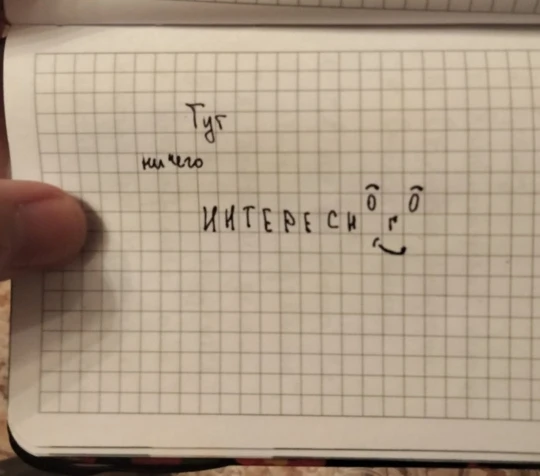 Тут
ничего
ИНТЕРЕСНОГО